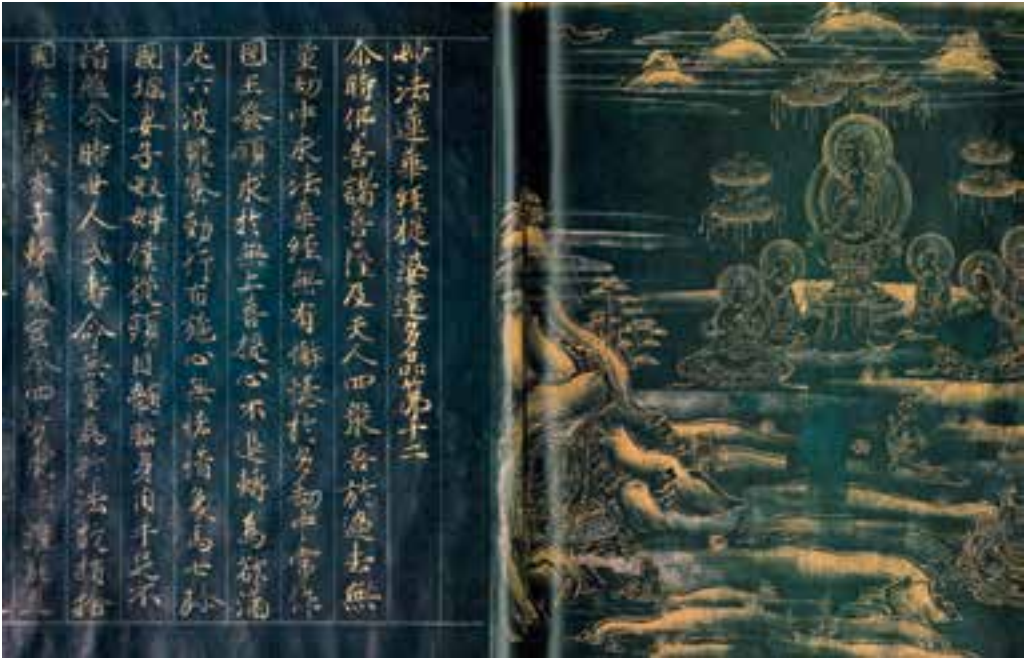 妙法蓮華經提婆達多品第十二
尒時佛告諸菩薩及天人四衆吾於過去無
量劫中求法華經無有懈惓於多劫中常作
國王發願求於無上菩提心不退轉為欲滿
足六波羅蜜勤行布施心無悋惜象馬七珍
國城妻子奴婢僕從頭目髓腦身肉手足不
惜軀命時世人民壽命無量為於法故捐捨
國位委政太子擊鼓宣令四方求法